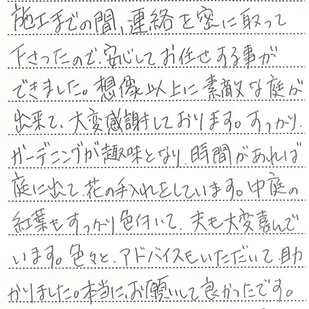 施工までの間、連絡を密に取って
下さったので、安心してお任せする事が
できました。想像以上に素敵な庭が
出来て、大変感謝しております。すっかり、
ガーデニングが趣味となり、時間があれば
庭に出て、花の手入れをしています。中庭の
紅葉もすっかり色付いて、夫も大変喜んで
います。色々と、アドバイスもいただいて、助
かりました。本当に、お願いして良かったです。